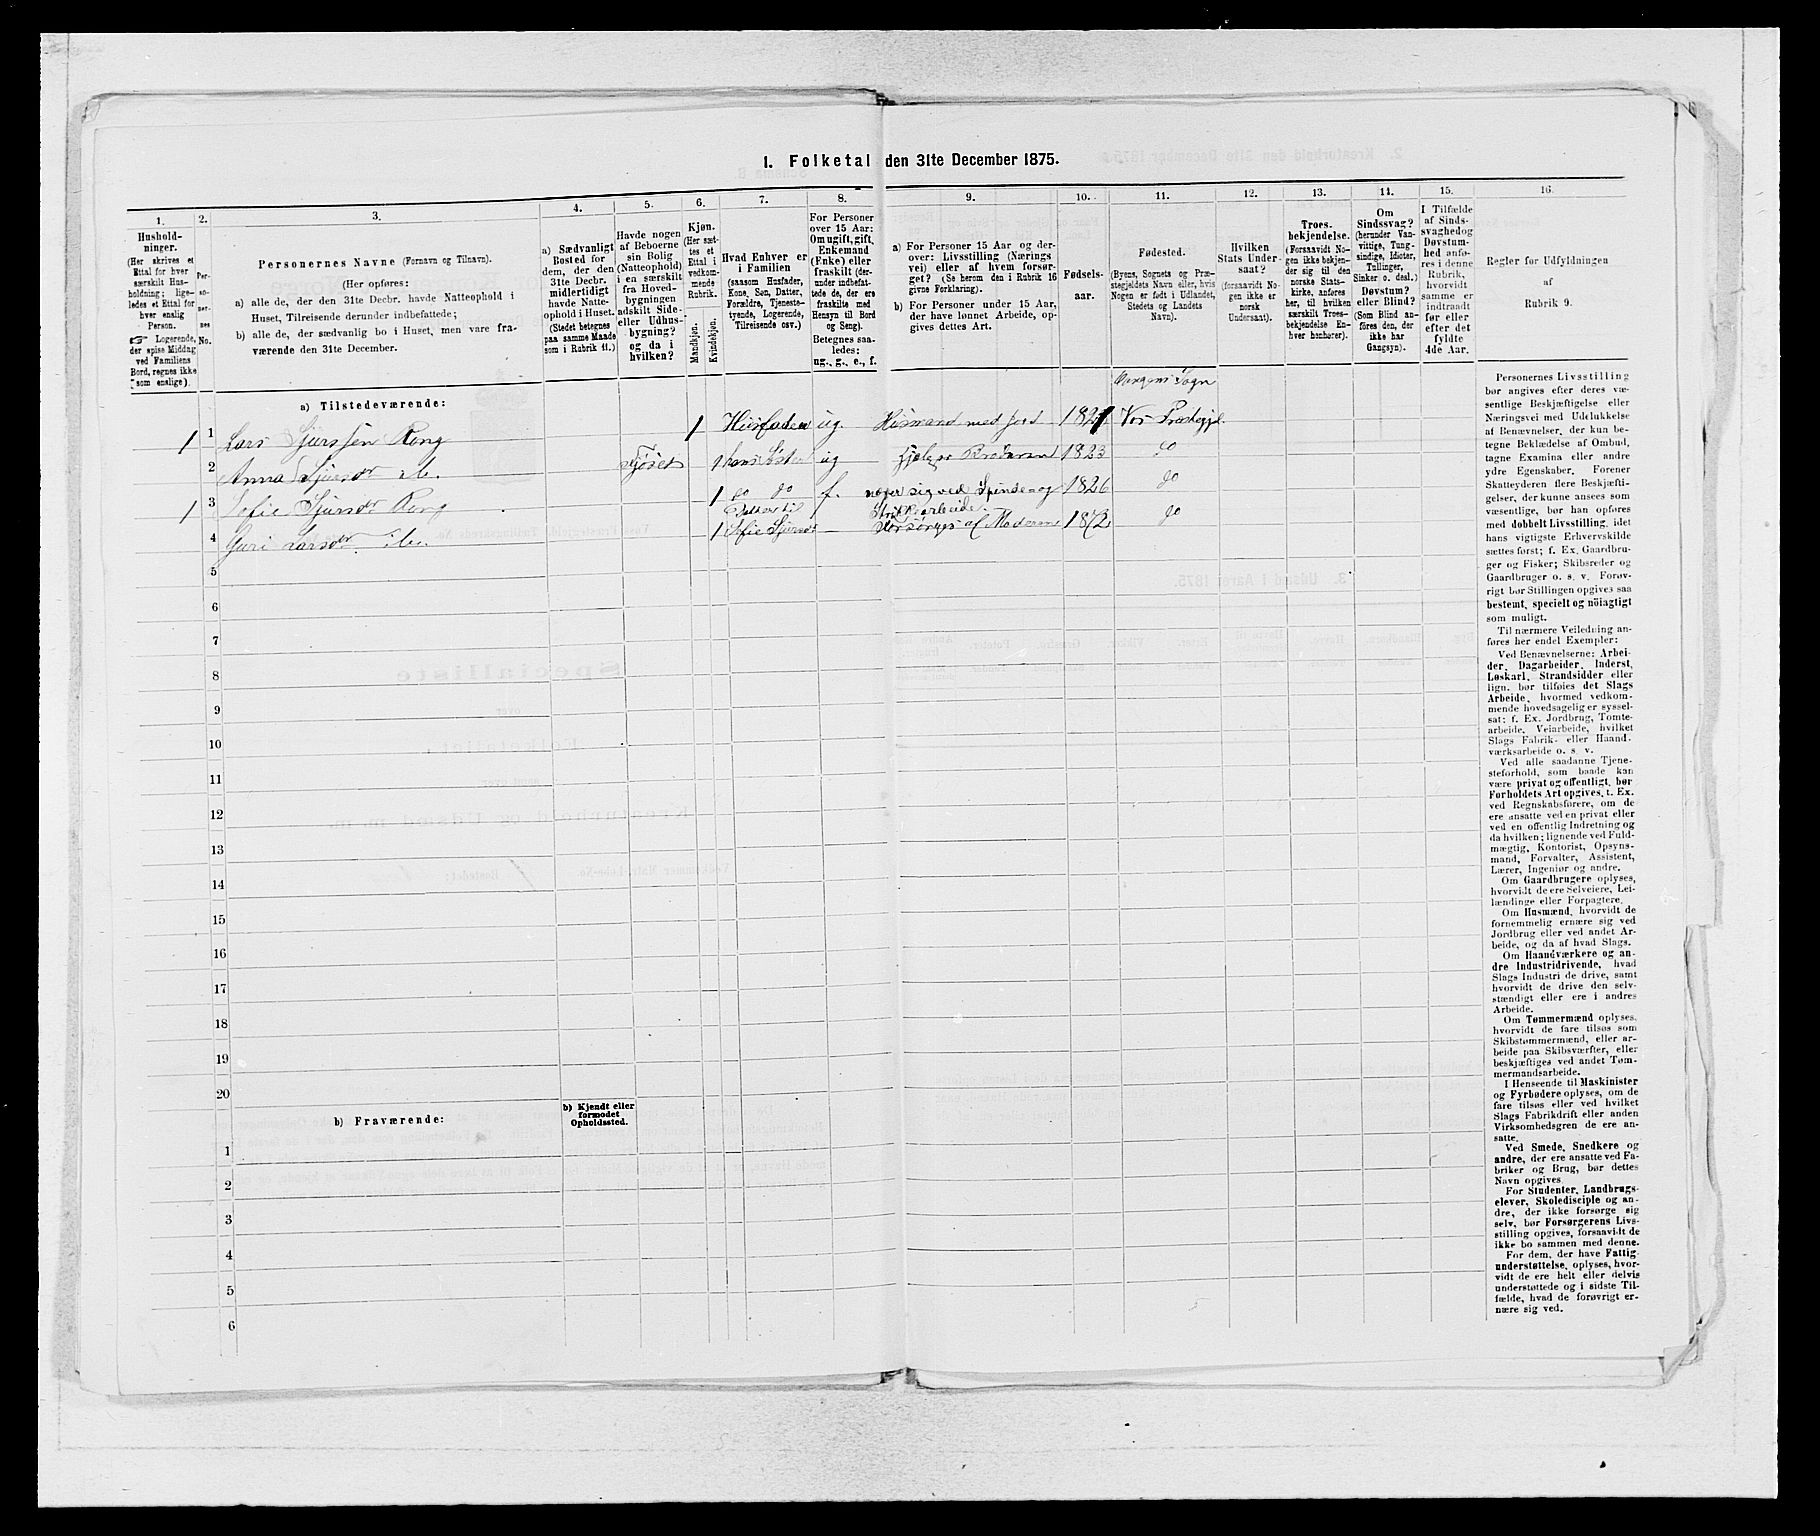 1. Folketal den 31te December 1875.
1.
Hushold-
ninger.
(Her skrives et
Ettal for hver
særskilt Hus-
holdning; lige-
ledes et Ettal for
hver enslig
Person.
☞ Logerende,
der spise Middag
ved Familiens
Bord, regnes ikke
som enslige).
2.
Per-
so-
ner-
nes
No.
3.
Personernes Navne (Fornavn og Tilnavn).
(Her opføres:
a) alle de, der den 31te Decbr. havde Natteophold i
Huset, Tilreisende derunder indbefattede;
b) alle de, der sædvanlig bo i Huset, men vare fra-
værende den 31te December.
4.
a) Sædvanligt
Bosted for
dem, der den
31te Decbr.
midlertidigt
havde Natte-
ophold i Huset.
(Stedet betegnes
paa samme Maade
som i Rubrik 11.)
5.
Havde nogen
af Beboerne
sin Bolig
(Natteophold)
i en særskilt
fra Hoved-
bygningen
adskilt Side-
eller Udhus-
bygning?
og da i
hvilken?
6.
Kjøn.
(Her sæt-
tes et
Ettal i
vedkom-
mende
Rubrik.
Mandkjøn.
Kvindekjøn.
7.
Hvad Enhver er
i Familien
(saasom Husfader,
Kone, Søn, Datter,
Forældre, Tjeneste-
tyende, Logerende,
Tilreisende osv.)
8.
For Personer
over 15 Aar:
Om ugift, gift,
Enkemand
(Enke) eller
fraskilt (der-
under indbefat-
tede de, der ere
fraskilte med
Hensyn til Bord
og Seng).
Betegnes saa-
ledes:
ug., g., e., f.
9.
a) For Personer 15 Aar og der-
over: Livsstilling (Nærings
vei) eller af hvem forsør-
get? (Se herom den i Rubrik 16
givne Forklaring).
b) For Personer under 15 Aar,
der have lønnet Arbeide, op-
gives dettes Art.
10.
Fødsels-
aar.
11.
Fødested.
(Byens, Sognets og Præ-
stegjeldets Navn eller, hvis
Nogen er født i Udlandet,
Stedets og Landets
Navn).
12.
Hvilken
Stats Under-
saat?
(forsaavidt No-
gen ikke er
norsk
Undersaat).
13.
Troes-
bekjendelse.
(Forsaavidt No-
gen ikke bekjen-
der sig til den
norske Stats-
kirke, anføres
her, til hvilken
særskilt Troes-
bekjendelse En-
hver henhører).
14.
Om
Sindssvag?
(herunder Van-
vittige, Tung-
sindige, Idioter,
Tullinger,
Sinker o. desl.)
Døvstum?
eller Blind?
(Som Blind an-
føres den, der
ikke har
Gangsyn).
15.
I Tilfælde
af Sinds-
svaghed og
Døvstum-
hed anfø-
res i denne
Rubrik,
hvorvidt
samme er
indtraadt
før eller
efter det
fyldte
4de Aar.
16.
Regler for Udfyldningen
af
Rubrik 9.
a) Tilstedeværende:
Vangens Sogn
1 1 Lars Sjursen Rong 1 Husfader ug. Husmand med Jord 1821 Vos Præstegjl.
2 Anna Sjursdr ib. 1 hans Søster ug hjelper Broderen 1823 do
1 3 Sofie Sjursdr Rong 1 do do f. nærer sig ved Spinde og 1826 do
Strikkearbeide.
4 Guri Larsdr ib. 1 Datter til
Sofie Sjursdr — Forsørges af Moderen 1872 do
5
6
7
8
9
10
11
12
13
14
15
16
17
18
19
20
b) Fraværende:
b) Kjendt eller
formodet
Opholdssted.
1
2
3
4
5
6
Personernes Livsstilling
bør angives efter deres væ-
sentlige Beskjæftigelse eller
Næringsvei med Udelukkelse
af Benævnelser, der kun be-
tegne Beklædelse af Ombud,
tagne Examina eller andre
ydre Egenskaber. Forener
Skatteyderen flere Beskjæfti-
gelser, der kunne ansees som
væsentlige, bør han opføres
med dobbelt Livsstilling, idet
hans vigtigste Erhvervskilde
sættes først; f. Ex. Gaardbru-
ger og Fisker; Skibsreder og
Gaardbruger o. s. v. Forøv-
rigt bør Stillingen opgives saa
bestemt, specielt og nöiagtigt
som muligt.
Til nærmere Veiledning an-
føres her endel Exempler:
Ved Benævnelserne: Arbei-
der, Dagarbeider, Inderst,
Løskarl, Strandsidder eller
lign. bør tilføies det Slags
Arbeide, hvormed vedkom-
mende hovedsagelig er syssel-
sat; f. Ex. Jordbrug, Tomte-
arbeide, Veiarbeide, hvilket
Slags Fabrik- eller Haand-
værksarbeide o. s. v.
Ved alle saadanne Tjene-
steforhold, som baade kan
være privat og offentligt, bør
Forholdets Art opgives, t. Ex.
ved Regnskabsførere, om de
ere ansatte ved en privat eller
ved en offentlig Indretning og
da hvilken; lignende ved Fuld-
mægtig, Kontorist, Opsyns-
mand, Forvalter, Assistent,
Lærer, Ingeniør og andre.
Om Gaardbrugere oplyses,
hvorvidt de ere Selveiere, Lei-
lændinge eller Forpagtere.
Om Husmænd, hvorvidt de
fornemmelig ernære sig ved
Jordbrug eller ved andet Ar-
beide, og da af hvad Slags.
Om Haandværkere og an-
dre Industridrivende, hvad
Slags Industri de drive, samt
hvorvidt de drive den selv-
stændigt eller ere i andres
Arbeide.
Om Tømmermænd oplyses,
hvorvidt de fare tilsøs som
Skibstømmermænd, eller ar-
beide paa Skibsværfter, eller
beskjæftiges ved andet Tøm-
mermandsarbeide.
I Henseende til Maskinister
og Fyrbødere oplyses, om de
fare tilsøs eller ved hvilket
Slags Fabrikdrift eller anden
Virksomhedsgren de ere an-
satte.
Ved Smede, Snedkere og
andre, der ere ansatte ved Fa-
briker og Brug, bør dettes
Navn opgives.
For Studenter, Landbrugs-
elever, Skoledisciple og an-
dre, der ikke forsørge sig
selv, bør Forsørgerens Livs-
stilling opgives, forsaavidt de
ikke bo sammen med denne.
For dem, der have Fattig-
understøttelse, oplyses, hvor-
vidt de ere helt eller delvis
understøttede og i sidste Til-
fælde, hvad de forøvrigt er-
nære sig ved.